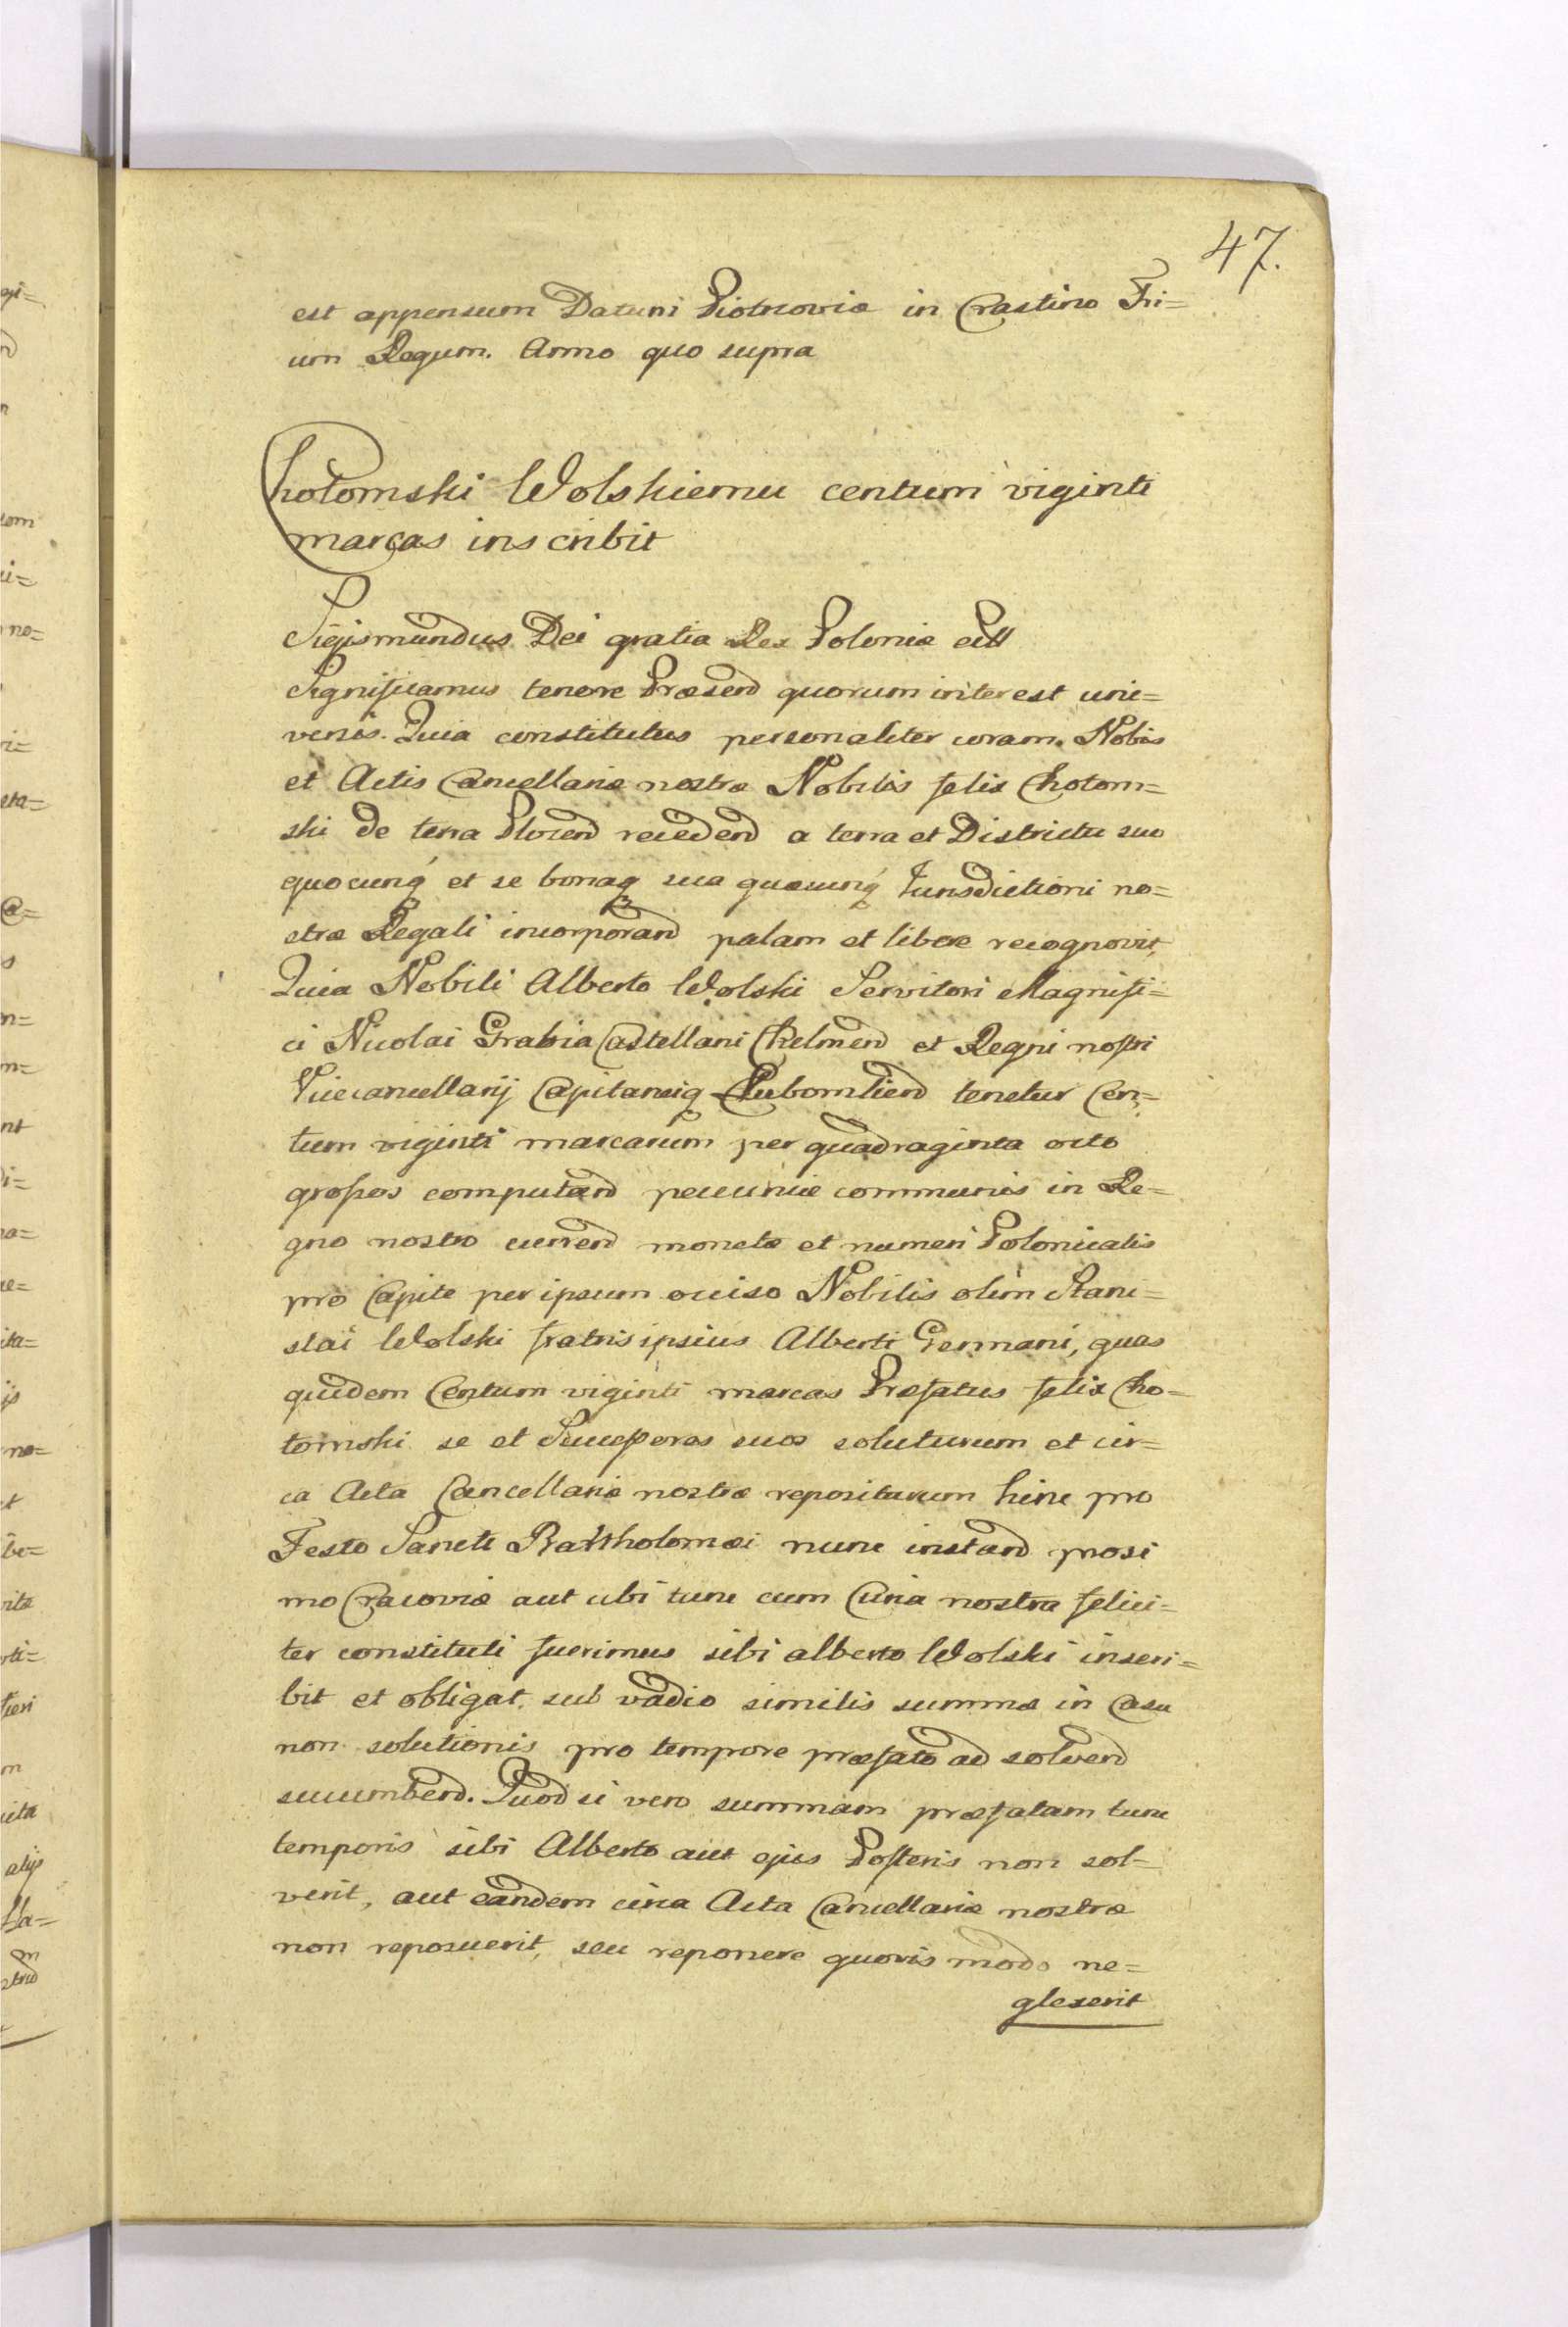 47.
est appensum Datum Piotrcoviæ in Crastino Tri=
um Regum. Anno quo supra
Chotomski Wolskiemu centum viginti
marcas inscribit
Sigismundus Dei gratia Rex Poloniæ ett
Significamus tenore Præsend quorum interest uni=
versis. Quia constitutus personaliter coram Nobis
et Actis Cancellariæ nostræ Nobilis felix Chotom=
ski de terra Plocend recedend a terra et Districtu suo
quocunq́ et se bonaq sua quæcunq́ Jurisdictioni no=
stræ Regali incorporand palam et libere recognovit,
Quia Nobili Alberto Wolski Servitori Magnifi=
ci Nicolai Grabia Castellani Chelmend et Regni nostri
Vicecancellarij Capitaneiq Lubomliend tenetur Cen=
tum viginti marcarum per quadraginta octo
grossos computand pecuniæ communis in Re=
gno nostro currend monetæ et numeri Polonicalis
pro Capite per ipsum occiso Nobilis olim Stani=
slai Wolski fratris ipsius Alberti Germani, quas
quidem Centum viginti marcas Præfatus felix Cho=
tomski se et Successores suos soluturum et cir=
ca Acta Cancellariæ nostræ repositurum hinc pro
Festo Sancti Bartholomæi nunc instand proxi
mo Cracoviæ aut ubi tunc cum Curia nostra felici=
ter constituti fuerimus sibi alberto Wolski inscri=
bit et obligat sub vadio similis summæ in Casu
non solutionis pro tempore præfato ad solvend
succumbend. Quod si vero summam præfatam tunc
temporis sibi Alberto aut ejus Posteris non sol=
verit, aut eandem circa Acta Cancellariæ nostræ
non reposuerit, seu reponere quovis modo ne=
glexerit